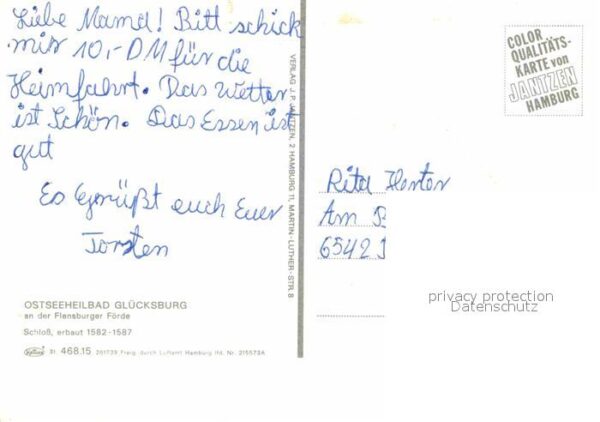 Liebe Mama! Bitt schick
mir 10,- DM für die
Heimfahrt. Das Wetter
ist Schön. Das Essen ist
gut
Es Grüßt euch Euer
Torsten
OSTSEEHEILBAD GLÜCKSBURG
an der Flensburger Förde
Schloß, erbaut 1582-1587
St 468.15 261739 Freig. durch Luftamt Hamburg lfd. Nr. 215573A
VERLAG J. P. JANTZEN, 2 HAMBURG 11, MARTIN-LUTHER-STR. 8
COLOR
QUALITÄTS-
KARTE von
JANTZEN
HAMBURG
Rita
Am
6542
privacy protection
Datenschutz